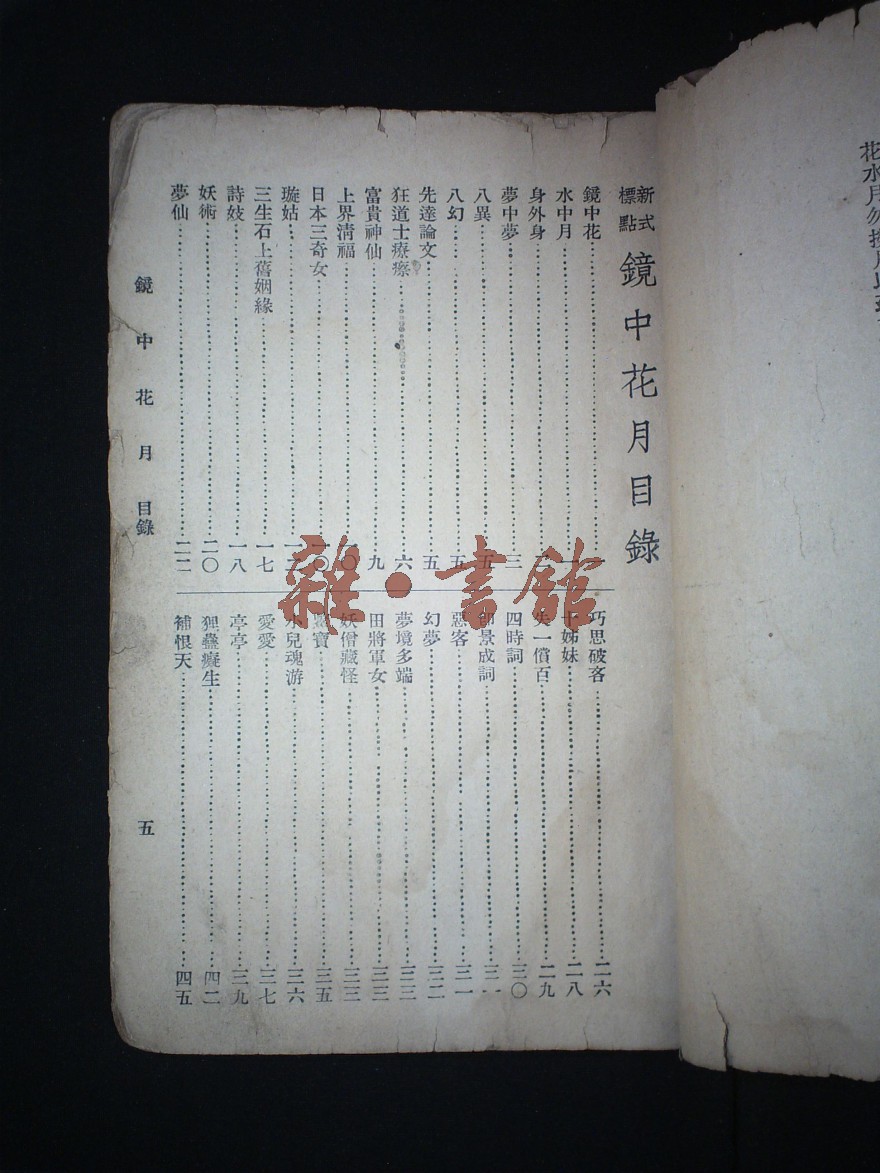 花水月勿
新式標點 鏡中花月目錄
鏡中花
水中月……一
身外身
夢中夢……三
八異……五
八幻……五
先達論文……五
狂道士療瘵……六
富貴神仙……九
上界清福……一〇
日本三奇女……一〇
璇姑……一二
三生石上舊姻緣……一七
詩妓……一八
妖術……二〇
夢仙……二二
巧思破客……二六
十姊妹……二八
失一償百……二九
四時詞……三〇
即景成詞……三一
惡客……三一
幻夢……三二
夢境多端……三二
田將軍女……三三
妖僧藏怪……三三
寶……三五
小兒魂游……三六
愛愛……三七
亭亭……三九
狸蠱癡生……四二
補恨天……四五
鏡中花月 目錄
五
雜·書館